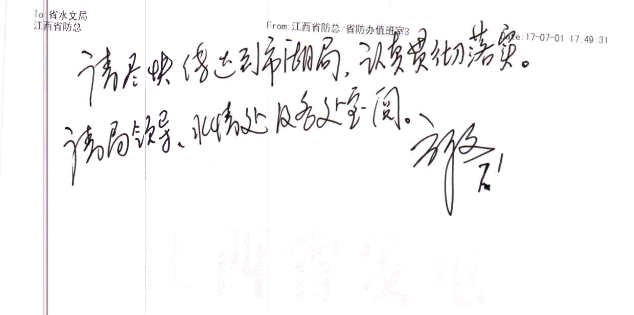 To:省水文局
江西省防总
From:江西省防总/省防办值班室3
e:17-07-01 17:49 31
请尽快传达到市湖局，认真贯彻落实。
请局领导、水情处及各处室阅。